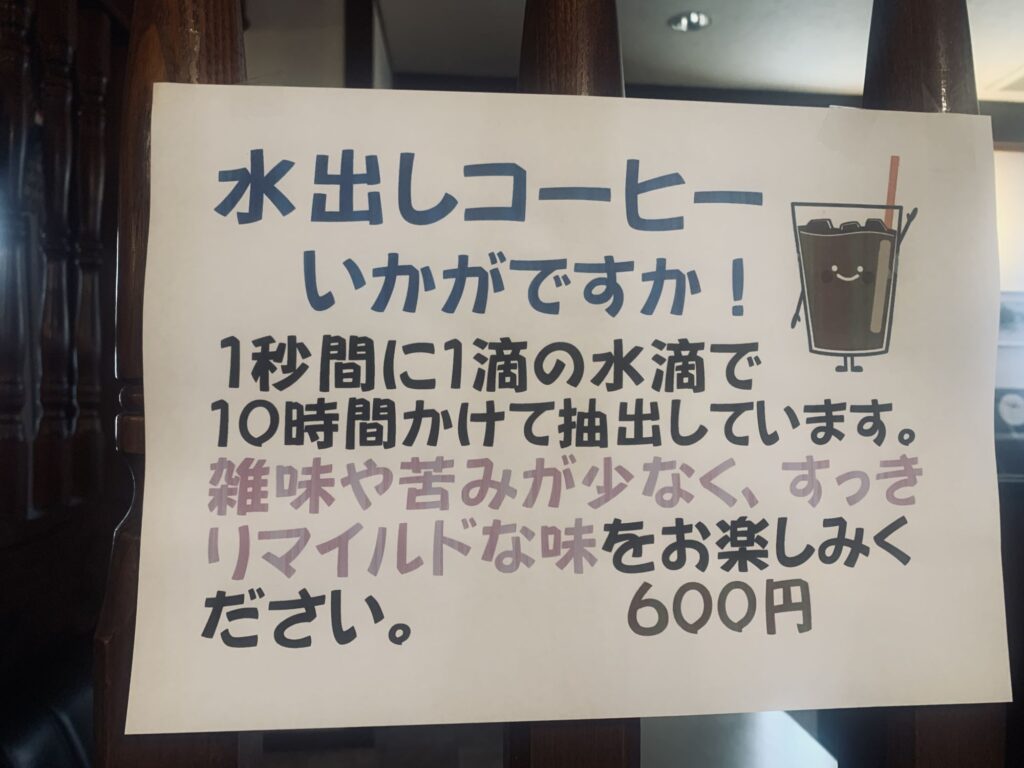 水出しコーヒー
いかがですか！
1秒間に1滴の水滴で
10時間かけて抽出しています。
雑味や苦みが少なく、すっき
りマイルドな味をお楽しみく
ださい。 600円